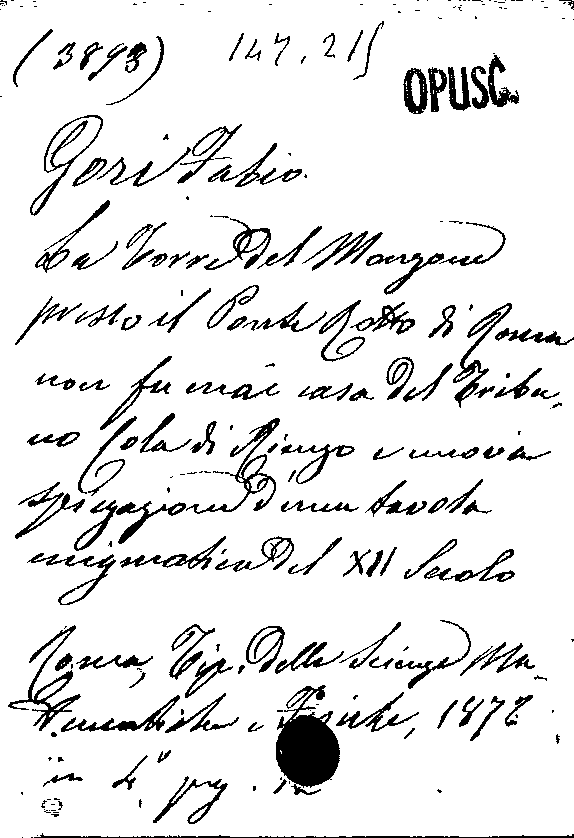 (3893) 147.215
OPUSC.
Gori Fabio.
La Torre del Monzone
presso il Ponte Rotto di Roma
non fu mai casa del Tribu-
no Cola di Rienzo e nuova
spiegazione d'una tavola
enigmatica del XII Secolo
Roma, Tip. delle Scienze Ma-
tematiche e Fisiche, 1872
in 4° pg. 12